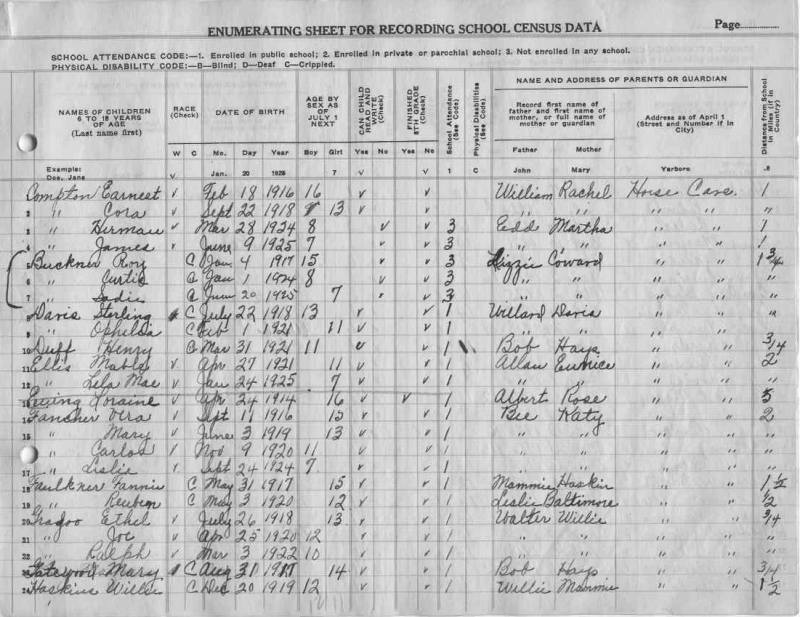 ENUMERATING SHEET FOR RECORDING SCHOOL CENSUS DATA Page
SCHOOL ATTENDANCE CODE:—1. Enrolled in public school; 2. Enrolled in private or parochial school; 3. Not enrolled in any school.
PHYSICAL DISABILITY CODE:—B—Blind; D—Deaf C—Crippled.
NAMES OF CHILDREN 6 to 18 YEARS OF AGE (Last name first)
RACE (Check) W C
DATE OF BIRTH Mo. Day Year
AGE BY SEX AS OF JULY 1 NEXT Boy Girl
CAN CHILD READ AND WRITE (Check) Yes No
FINISHED 8TH GRADE (Check) Yes No
School Attendance (See Code)
Physical Disabilities (See Code) C
NAME AND ADDRESS OF PARENTS OR GUARDIAN
Record first name of father and first name of mother, or full name of mother or guardian
Father Mother
Address as of April 1 (Street and Number if in City)
Distance from School in Miles (if in Country)
Example: Doe, Jane √ Jan. 20 1925 7 √ √ 1 John Mary Yerboro .8
Compton Earnest √ Feb 18 1916 16 √ √ William Rachel Horse Cave. 1
2 " Cora √ Sept 22 1918 13 √ √ " " " " "
3 " Herman √ Mar 28 1924 8 √ √ 3 Edd Martha " " 1
4 " James √ June 9 1925 7 √ √ 3 " " " " 1
5 Buckner Roy C Jan 4 1917 15 √ √ 3 Lizzie Coward " " 1 3/4
6 " Curtis C Jan 1 1924 8 √ √ 3 " " " " "
7 " Sadie C June 20 1925 7 √ √ 3 " " " " "
Davis Sterling C July 22 1918 13 √ √ 1 Willard Davis " " "
9 " Ophelda C Feb 1 1921 11 √ √ 1 " " " " "
10 Duff Henry C Mar 31 1921 11 √ √ 1 Bob Hays " " 3/4
11 Ellis Mable √ Apr 27 1921 11 √ √ 1 Allan Eunice " " 2
12 " Lela Mae √ Jan 24 1925 7 √ √ 1 " " " " "
Ewing Loraine √ Apr 24 1914 16 √ √ 1 Albert Rose " " 5
14 Fansher Vera √ Sept 11 1916 15 √ √ 1 Bee Katy " " 2
15 " Mary √ June 3 1919 13 √ √ 1 " " " " "
" Carlos √ Nov 9 1920 11 √ √ 1 " " " " "
17 " Leslie √ Sept 24 1924 7 √ 1 " " " " "
18 Faulkner Fannie C May 31 1917 15 √ √ 1 Mammie Haskin " " 1 1/2
19 " Reuben C May 3 1920 12 √ √ 1 Leslie Baltimore " " 1/2
20 Ethel √ July 26 1918 13 √ √ 1 Walter Willie " " 3/4
21 " Joe √ Apr 25 1920 12 √ √ 1 " " " " "
22 " Ralph √ Mar 3 1922 10 √ √ 1 " " " " "
23 Mary C Aug 31 1917 14 √ √ 1 Bob Hays " " 3/4
24 Haskins Willie C Dec 20 1919 12 √ √ 1 Willie Mammie " " 1 1/2